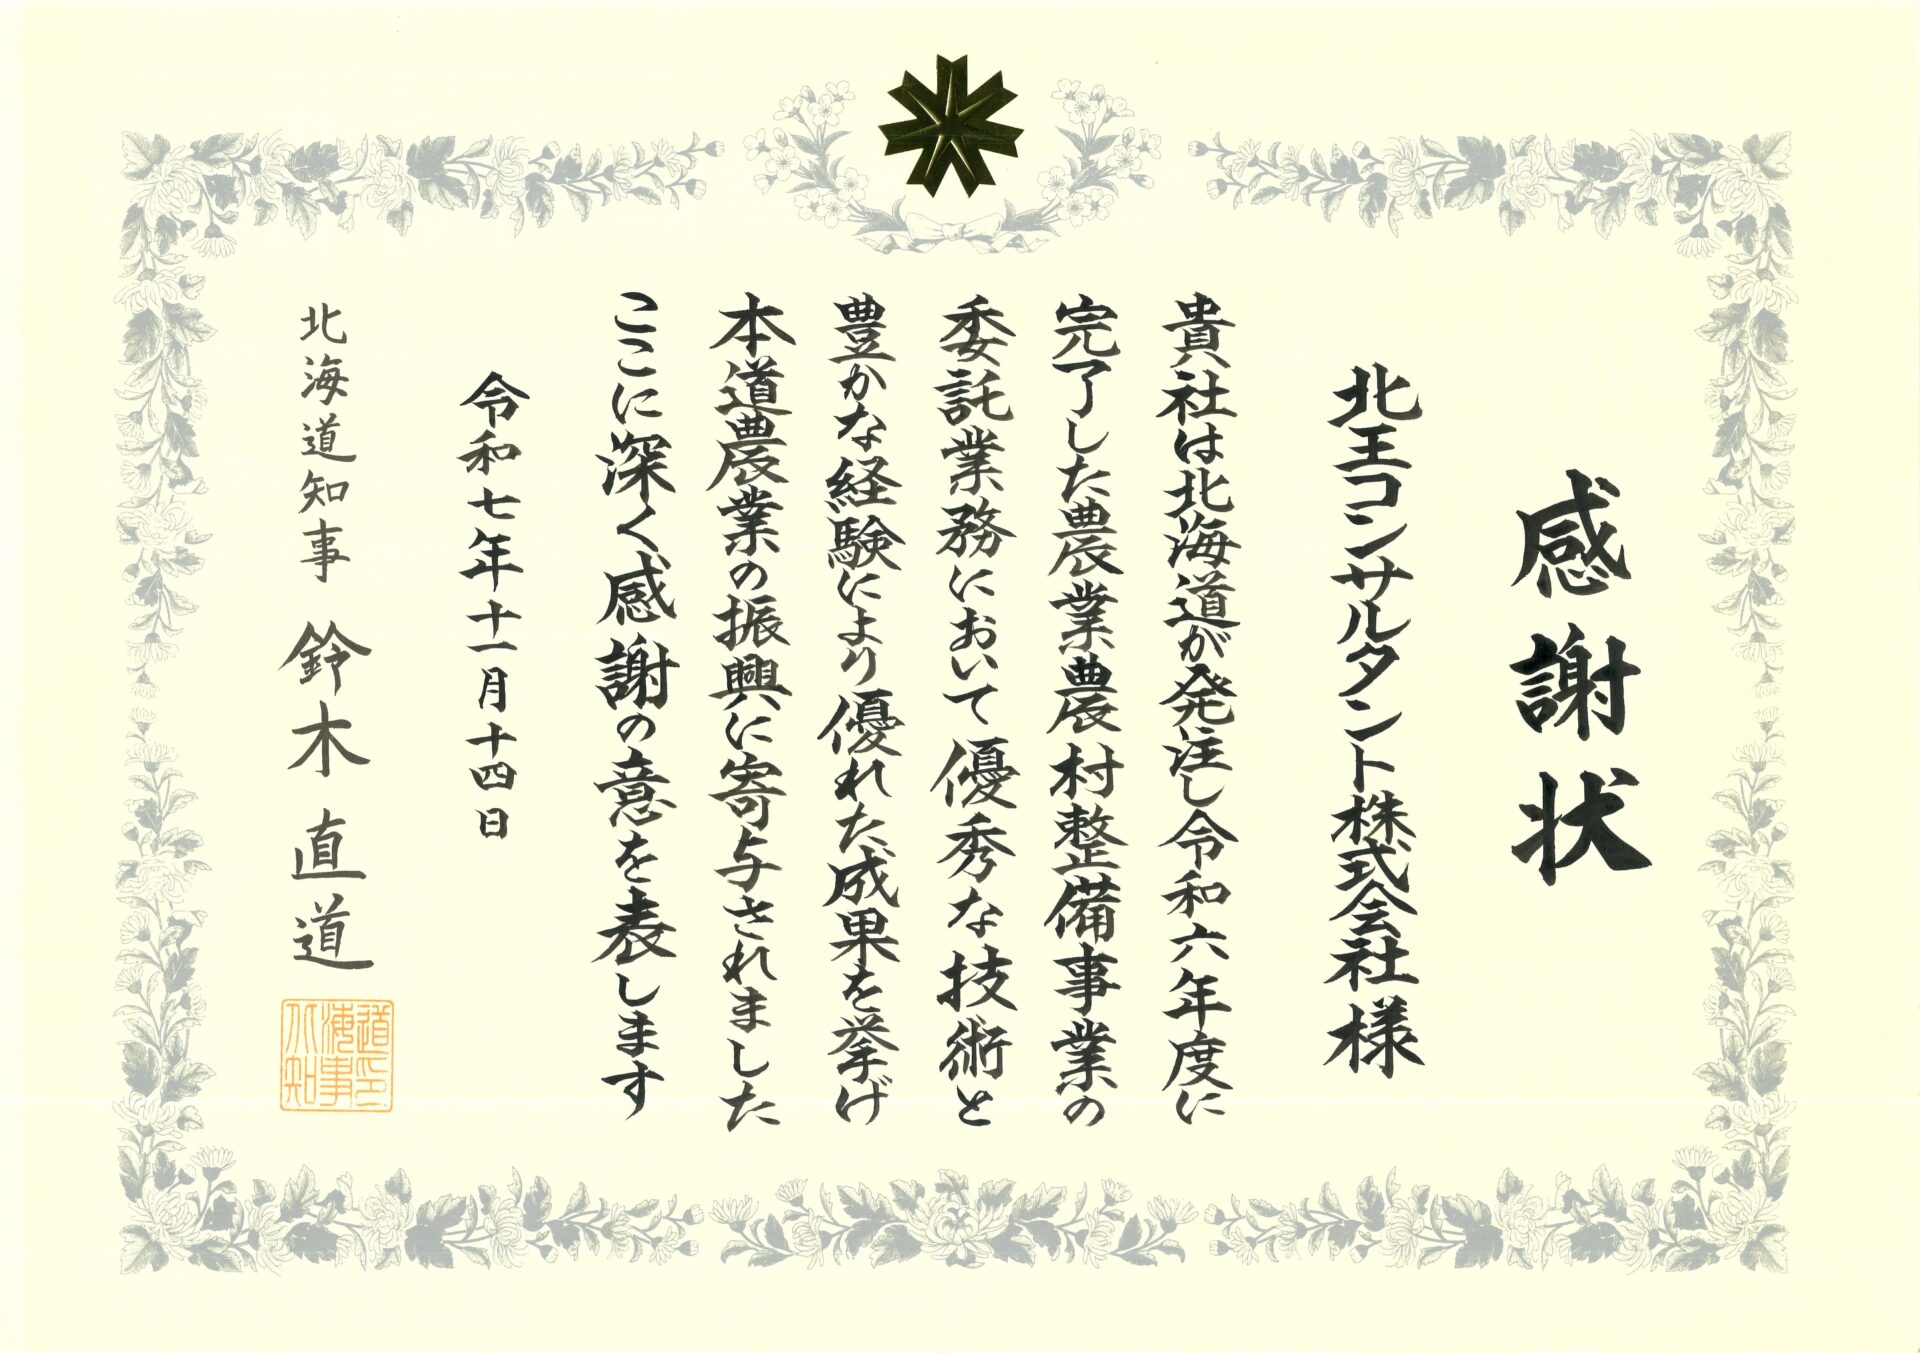 感謝状
北王コンサルタント株式会社様
貴社は北海道が発注し令和六年度に
完了した農業農村整備事業の
委託業務において優秀な技術と
豊かな経験により優れた成果を挙げ
本道農業の振興に寄与されました
ここに深く感謝の意を表します
令和七年十一月十四日
北海道知事 鈴木直道
北海道知事印